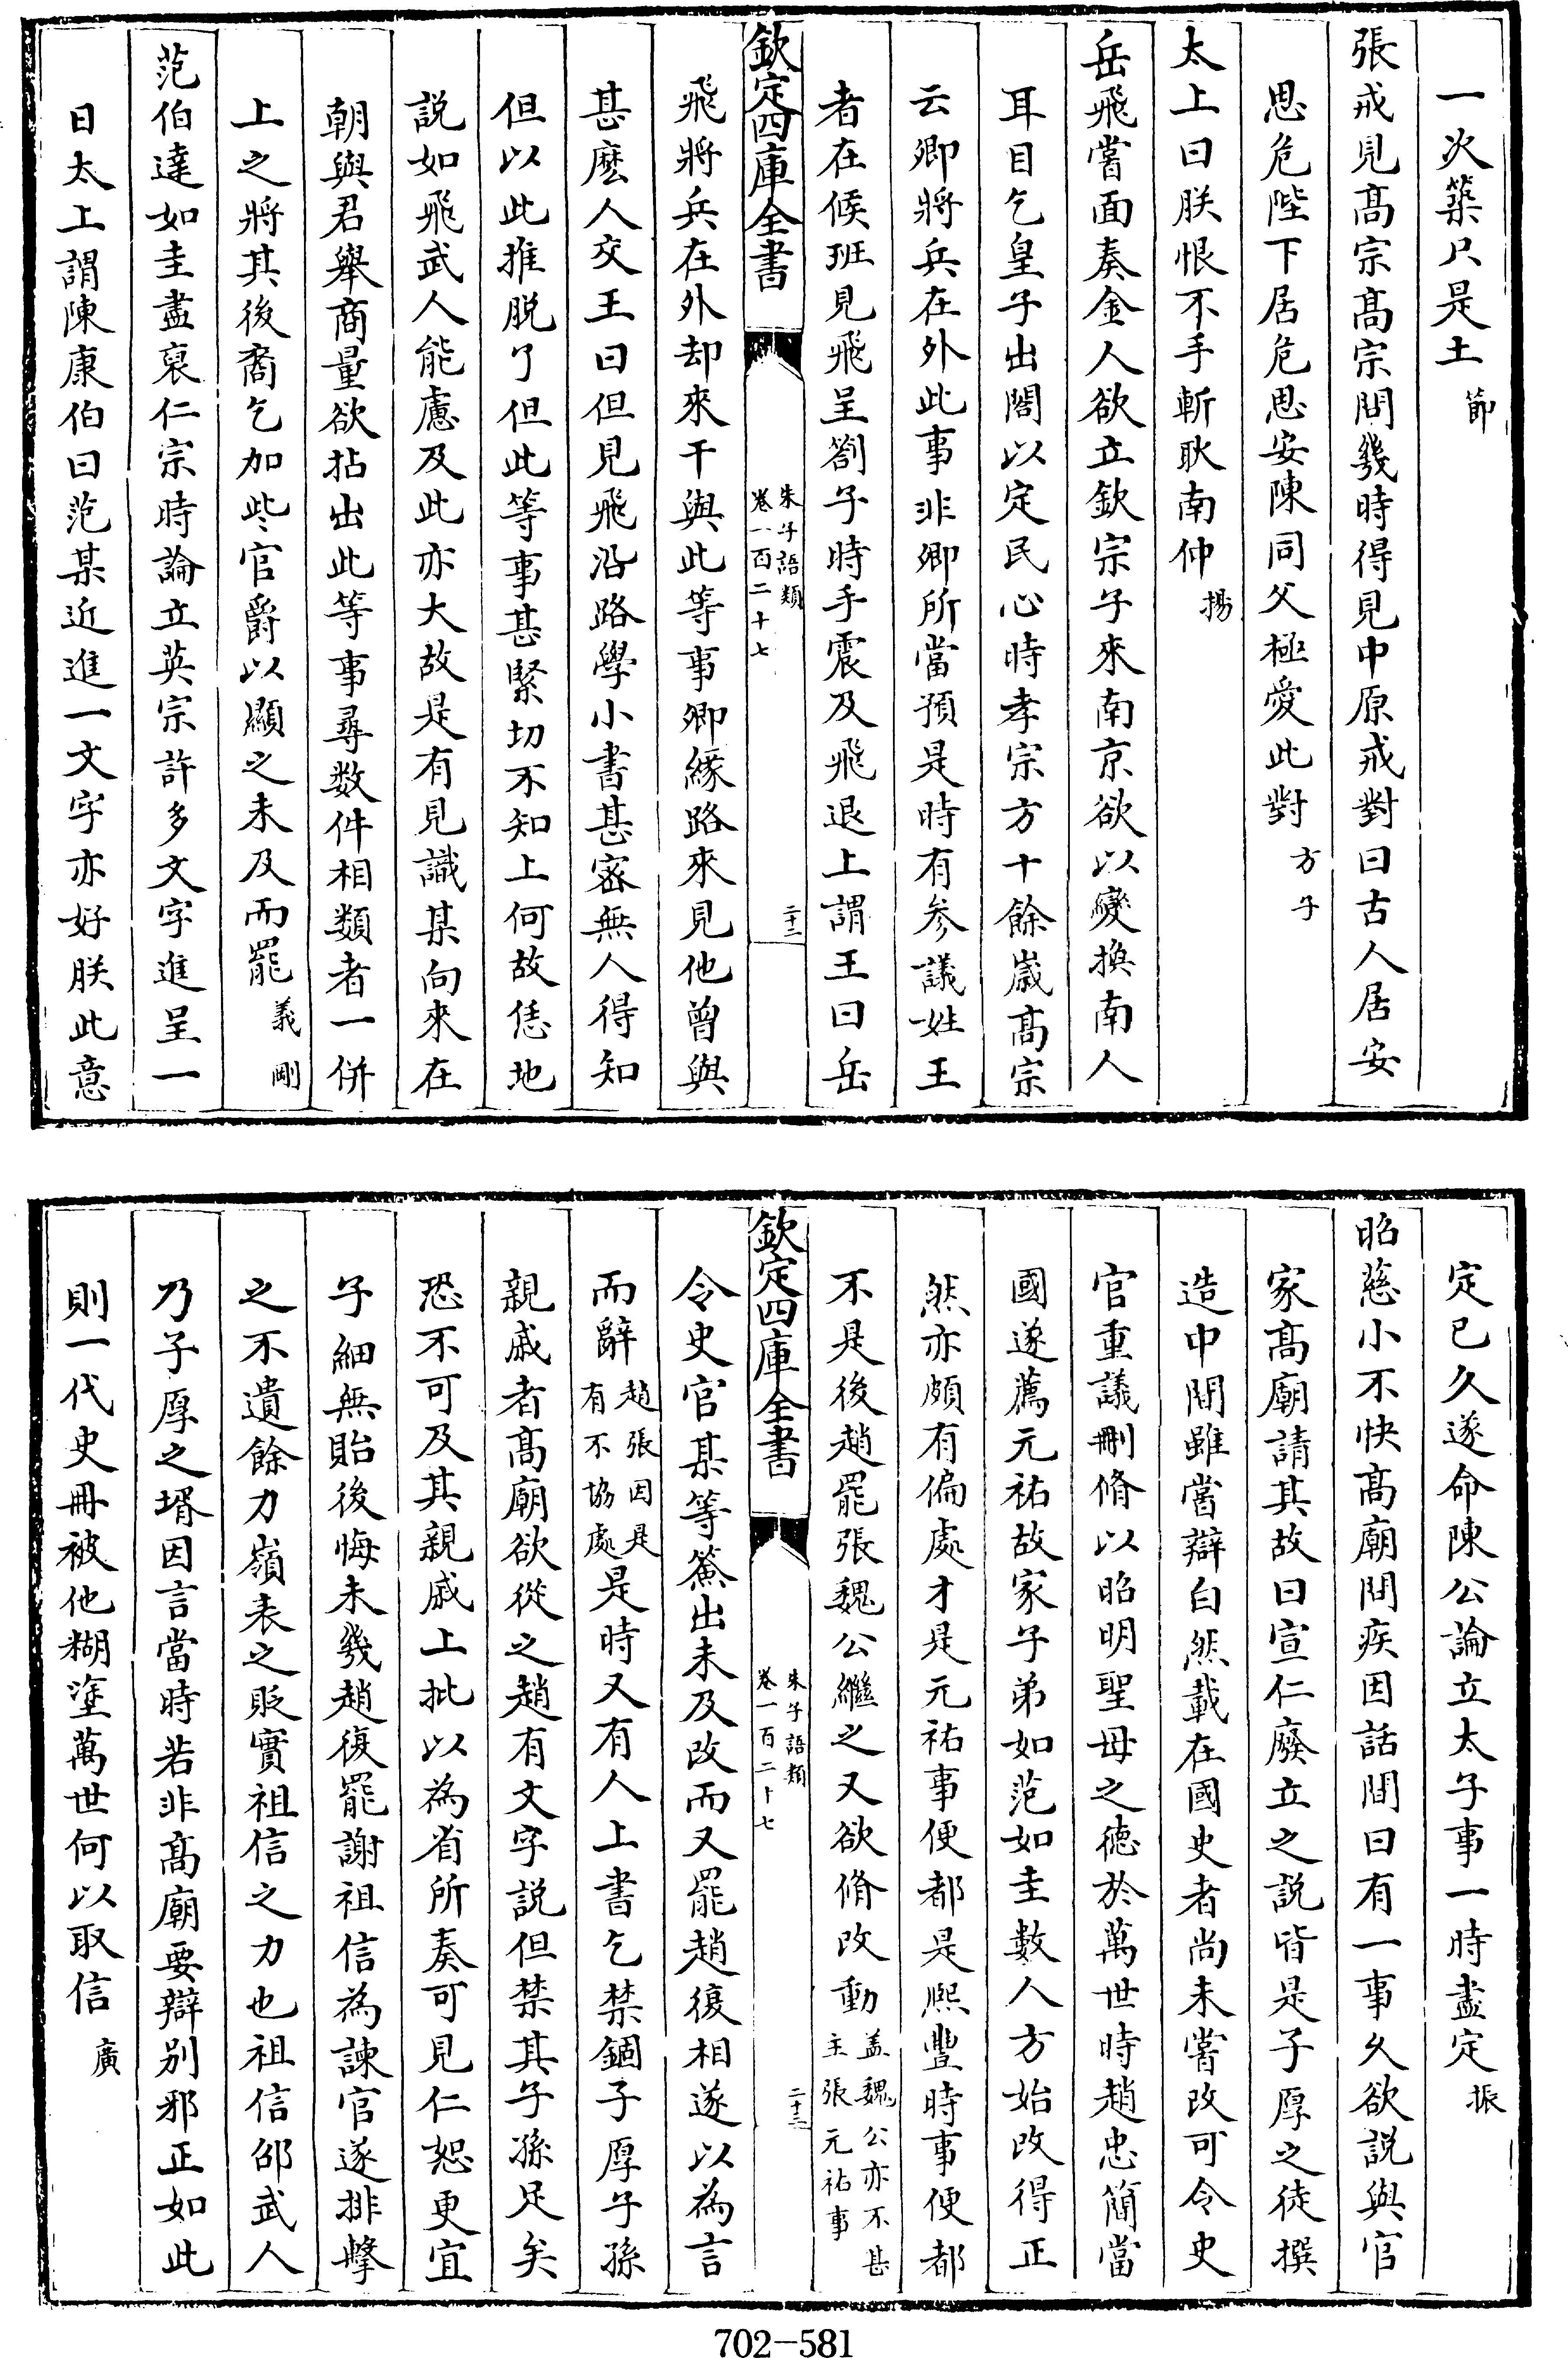 一次築只是土節
張戒見髙宗髙宗問幾時得見中原戒對曰古人居安
思危陛下居危思安陳同父極愛此對方子
太上曰朕恨不手斬耿南仲揚
岳飛嘗面奏金人欲立欽宗子來南京欲以變換南人
耳目乞皇子出閣以定民心時孝宗方十餘嵗髙宗
云卿將兵在外此事非卿所當預是時有参議姓王
者在候班見飛呈劄子時手震及飛退上謂王曰岳
欽定四庫全書
朱子語類
卷一百二十七
二十二
飛將兵在外却來干與此等事卿縁路來見他曾與
甚麽人交王曰但見飛沿路學小書甚宻無人得知
但以此推脱了但此等事甚緊切不知上何故恁地
説如飛武人能慮及此亦大故是有見識某向來在
朝與君舉商量欲拈出此等事尋数件相類者一併
上之將其後裔乞加些官爵以顯之未及而罷義剛
范伯達如圭盡裒仁宗時論立英宗許多文字進呈一
日太上謂陳康伯曰范某近進一文字亦好朕此意
定已久遂命陳公論立太子事一時盡定振
昭慈小不快髙廟問疾因話間曰有一事久欲説與官
家髙廟請其故曰宣仁廢立之説皆是子厚之徒撰
造中間雖嘗辯白然載在國史者尚未嘗改可令史
官重議刪脩以昭明聖母之徳於萬世時趙忠簡當
國遂薦元祐故家子弟如范如圭數人方始改得正
然亦頗有偏處才是元祐事便都是熈豐時事便都
不是後趙罷張魏公繼之又欲脩改動盖魏公亦不甚
主張元祐事
欽定四庫全書
朱子語類
卷一百二十七
二十三
令史官某等簽出未及改而又罷趙復相遂以為言
而辭趙張因是
有不協處是時又有人上書乞禁錮子厚子孫
親戚者髙廟欲從之趙有文字説但禁其子孫足矣
恐不可及其親戚上批以為省所奏可見仁恕更宜
子細無貽後悔未幾趙復罷謝祖信為諫官遂排擊
之不遺餘力嶺表之貶實祖信之力也祖信邵武人
乃子厚之壻因言當時若非髙廟要辯别邪正如此
則一代史冊被他糊塗萬世何以取信廣
702-581